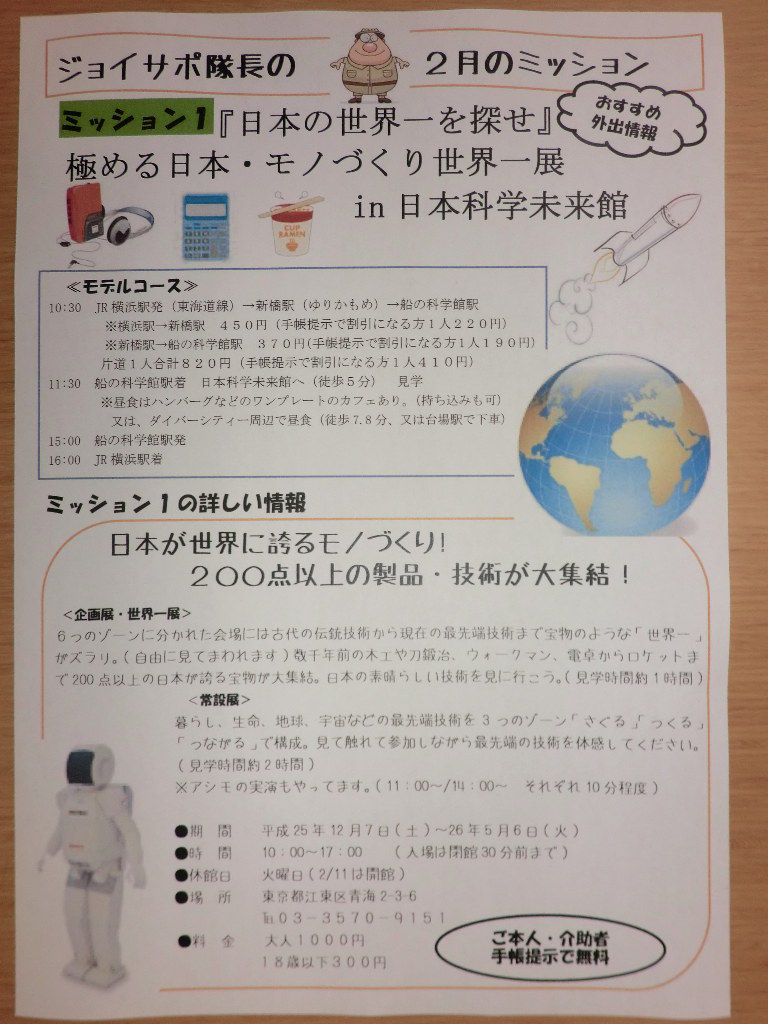 ジョイサポ隊長の 2月のミッション
おすすめ
外出情報
ミッション1『日本の世界一を探せ』
極める日本・モノづくり世界一展
in 日本科学未来館
CUP
RAMEN
≪モデルコース≫
10:30 JR横浜駅発（東海道線）→新橋駅（ゆりかもめ）→船の科学館駅
※横浜駅→新橋駅 450円（手帳提示で割引になる方1人220円）
※新橋駅→船の科学館駅 370円(手帳提示で割引になる方1人190円）
片道1人合計820円（手帳提示で割引になる方1人410円）
11:30 船の科学館駅着 日本科学未来館へ（徒歩5分） 見学
※昼食はハンバーグなどのワンプレートのカフェあり。（持ち込みも可）
又は、ダイバーシティー周辺で昼食（徒歩7.8分、又は台場駅で下車）
15:00 船の科学館駅発
16:00 JR横浜駅着
ミッション1の詳しい情報
日本が世界に誇るモノづくり!
200点以上の製品・技術が大集結！
＜企画展・世界一展＞
6つのゾーンに分かれた会場には古代の伝統技術から現在の最先端技術まで宝物のような「世界一」
がズラリ。(自由に見てまわれます)数千年前の木工や刀鍛冶、ウォークマン、電卓からロケットま
で200点以上の日本が誇る宝物が大集結。日本の素晴らしい技術を見に行こう。(見学時間約1時間)
＜常設展＞
暮らし、生命、地球、宇宙などの最先端技術を3つのゾーン「さぐる」「つくる」
「つながる」で構成。見て触れて参加しながら最先端の技術を体感してください。
(見学時間約2時間)
※アシモの実演もやってます。(11:00～/14:00～ それぞれ10分程度)
●期 間 平成25年12月7日(土)～26年5月6日(火)
●時 間 10:00～17:00 (入場は閉館30分前まで)
●休館日 火曜日(2/11は開館)
●場 所 東京都江東区青海2-3-6
℡03-3570-9151
●料 金 大人1000円
18歳以下300円
ご本人・介助者
手帳提示で無料